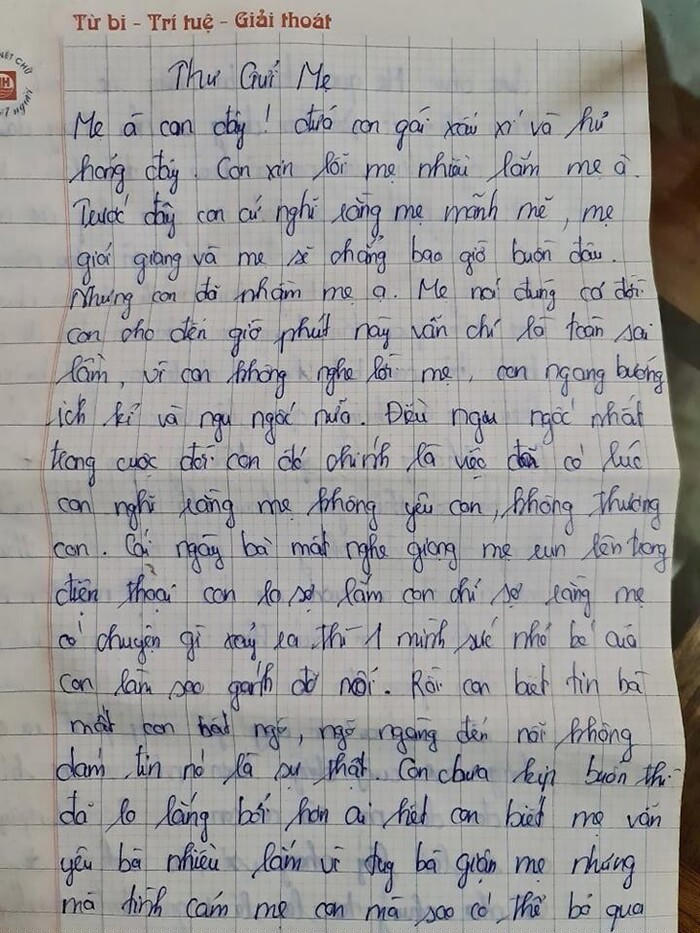 Từ bi - Trí tuệ - Giải thoát
NÉT CHỮ
Thư Gửi Mẹ
Mẹ à con đây! đứa con gái xấu xí và hư
hỏng đây. Con xin lỗi mẹ nhiều lắm mẹ à.
Trước đây con cứ nghĩ rằng mẹ mãnh mẽ, mẹ
giỏi giang và mẹ sẽ chẳng bao giờ buồn đâu.
Nhưng con đã nhầm mẹ ạ. Mẹ nói đúng cơ đời
con cho đến giờ phút này vẫn chỉ là toàn sai
lầm, vì con không nghe lời mẹ, con ngang bướng
ích kỉ và ngu ngốc nữa. Điều ngu ngốc nhất
trong cuộc đời con đó chính là việc đã có lúc
con nghĩ rằng mẹ không yêu con, không thương
con. Cái ngày bà mất nghe giọng mẹ run lên trong
điện thoại con lo sợ lắm con chỉ sợ rằng mẹ
có chuyện gì xảy ra thì 1 mình sức nhỏ bé của
con làm sao gánh đỡ nổi. Rồi con biết tin bà
mất con bất ngờ, ngỡ ngàng đến nỗi không
dám tin nó là sự thật. Con chưa kịp buồn thì
đã lo lắng bởi hơn ai hết con biết mẹ vẫn
yêu bà nhiều lắm vì dug bà giận mẹ nhưng
mà tình cảm mẹ con mà sao có thể bỏ qua